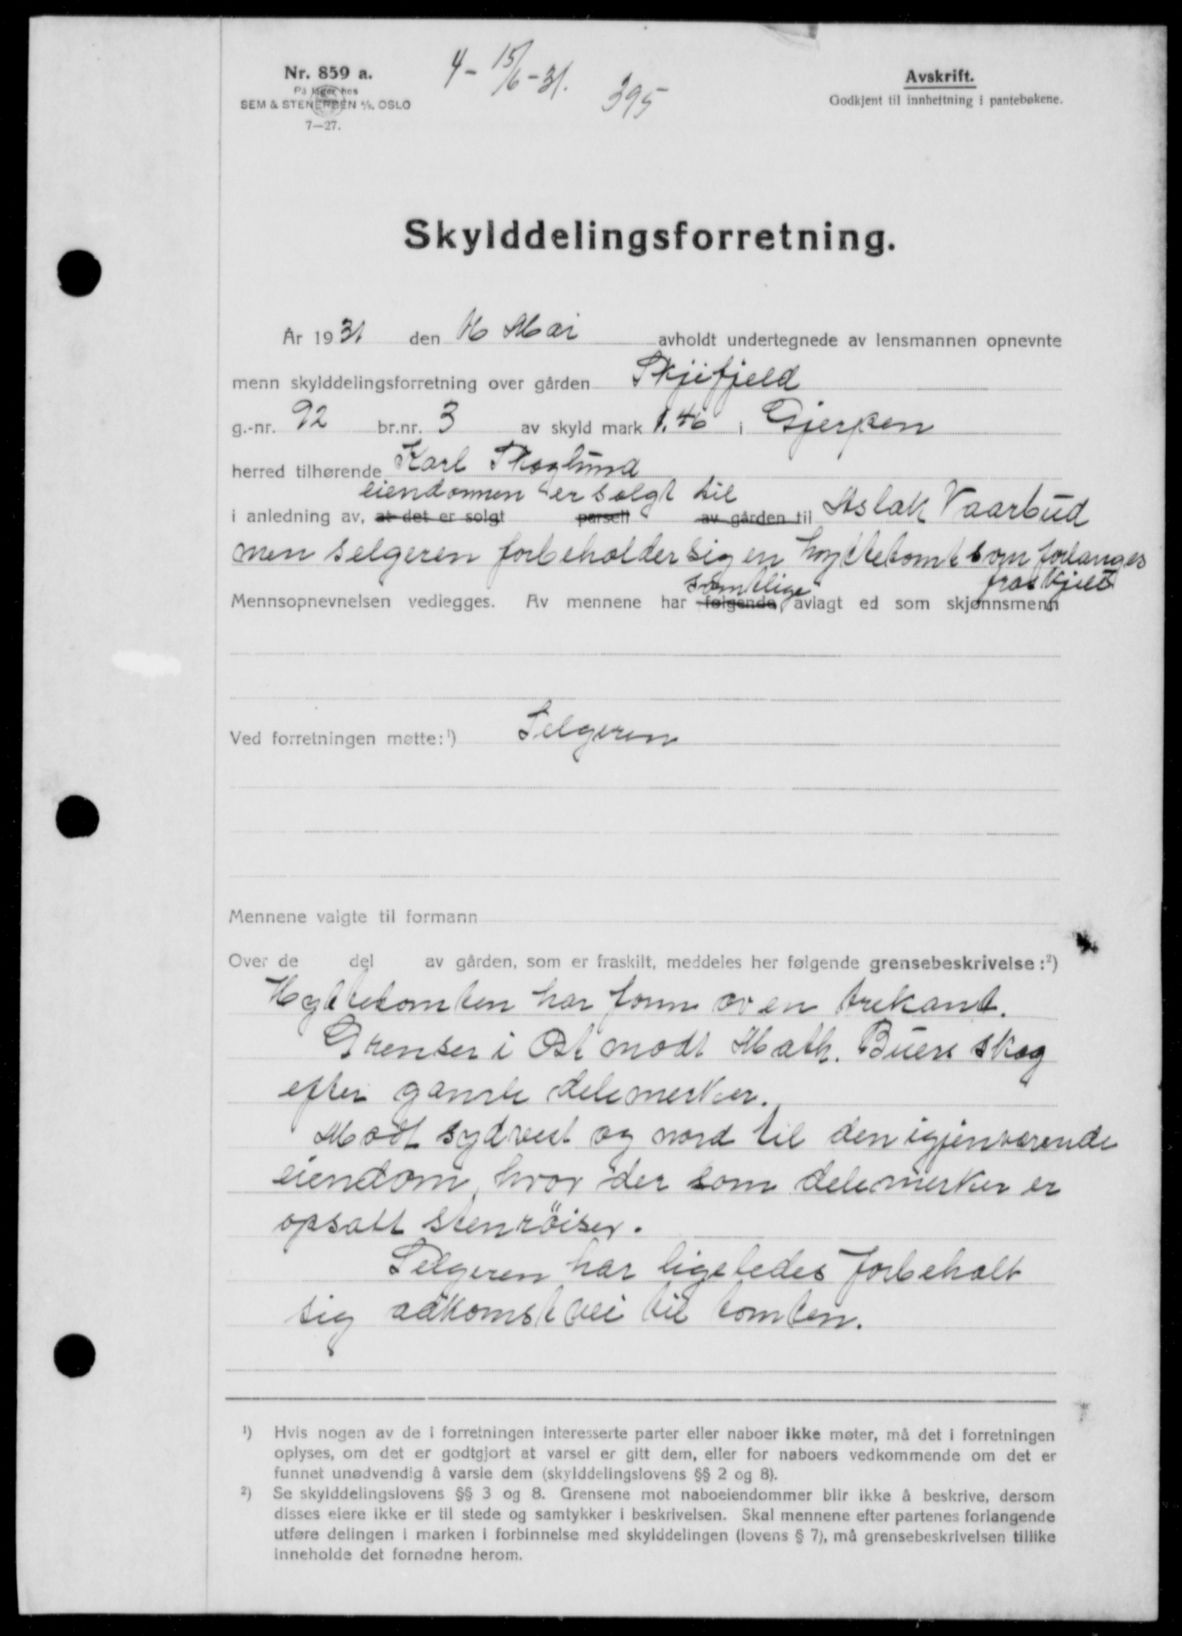 Nr. 859 a.
På lager hos
SEM & STENERSEN A/S. OSLO
7—27.
4 - 15/6 - 31.
395
Avskrift.
Godkjent til innheftning i pantebøkene.
Skylddelingsforretning.
År 1931 den 16 Mai avholdt undertegnede av lensmannen opnevnte
menn skylddelingsforretning over gården Skjifjeld
g.-nr. 92 br.nr. 3 av skyld mark 1.46 i Gjerpen
herred tilhørende Karl Skoglund
eiendommen er solgt til
i anledning av, at det er solgt parsell av gården til Aslak Vaarbud
men selgeren forbeholder sig en hyttetomt som forlanges
fraskjilt
samtlige
Mennsopnevnelsen vedlegges. Av mennene har følgende, avlagt ed som skjønnsmenn
Ved forretningen møtte:¹) Selgeren
Mennene valgte til formann
Over de del av gården, som er fraskilt, meddeles her følgende grensebeskrivelse:²)
Hyttetomten har form av en trekant.
Grenser i Øst modt Math. Buers skog
efter gamle delemerker.
Modt sydvest og nord til den igjenværende
eiendom, hvor der som delemerker er
opsatt stenröiser.
Selgeren har ligeledes forbeholt
sig adkomst vei til tomten.
¹) Hvis nogen av de i forretningen interesserte parter eller naboer ikke møter, må det i forretningen
oplyses, om det er godtgjort at varsel er gitt dem, eller for naboers vedkommende om det er
funnet unødvendig å varsle dem (skylddelingslovens §§ 2 og 8).
²) Se skylddelingslovens §§ 3 og 8. Grensene mot naboeiendommer blir ikke å beskrive, dersom
disses eiere ikke er til stede og samtykker i beskrivelsen. Skal mennene efter partenes forlangende
utføre delingen i marken i forbinnelse med skylddelingen (lovens § 7), må grensebeskrivelsen tillike
inneholde det fornødne herom.